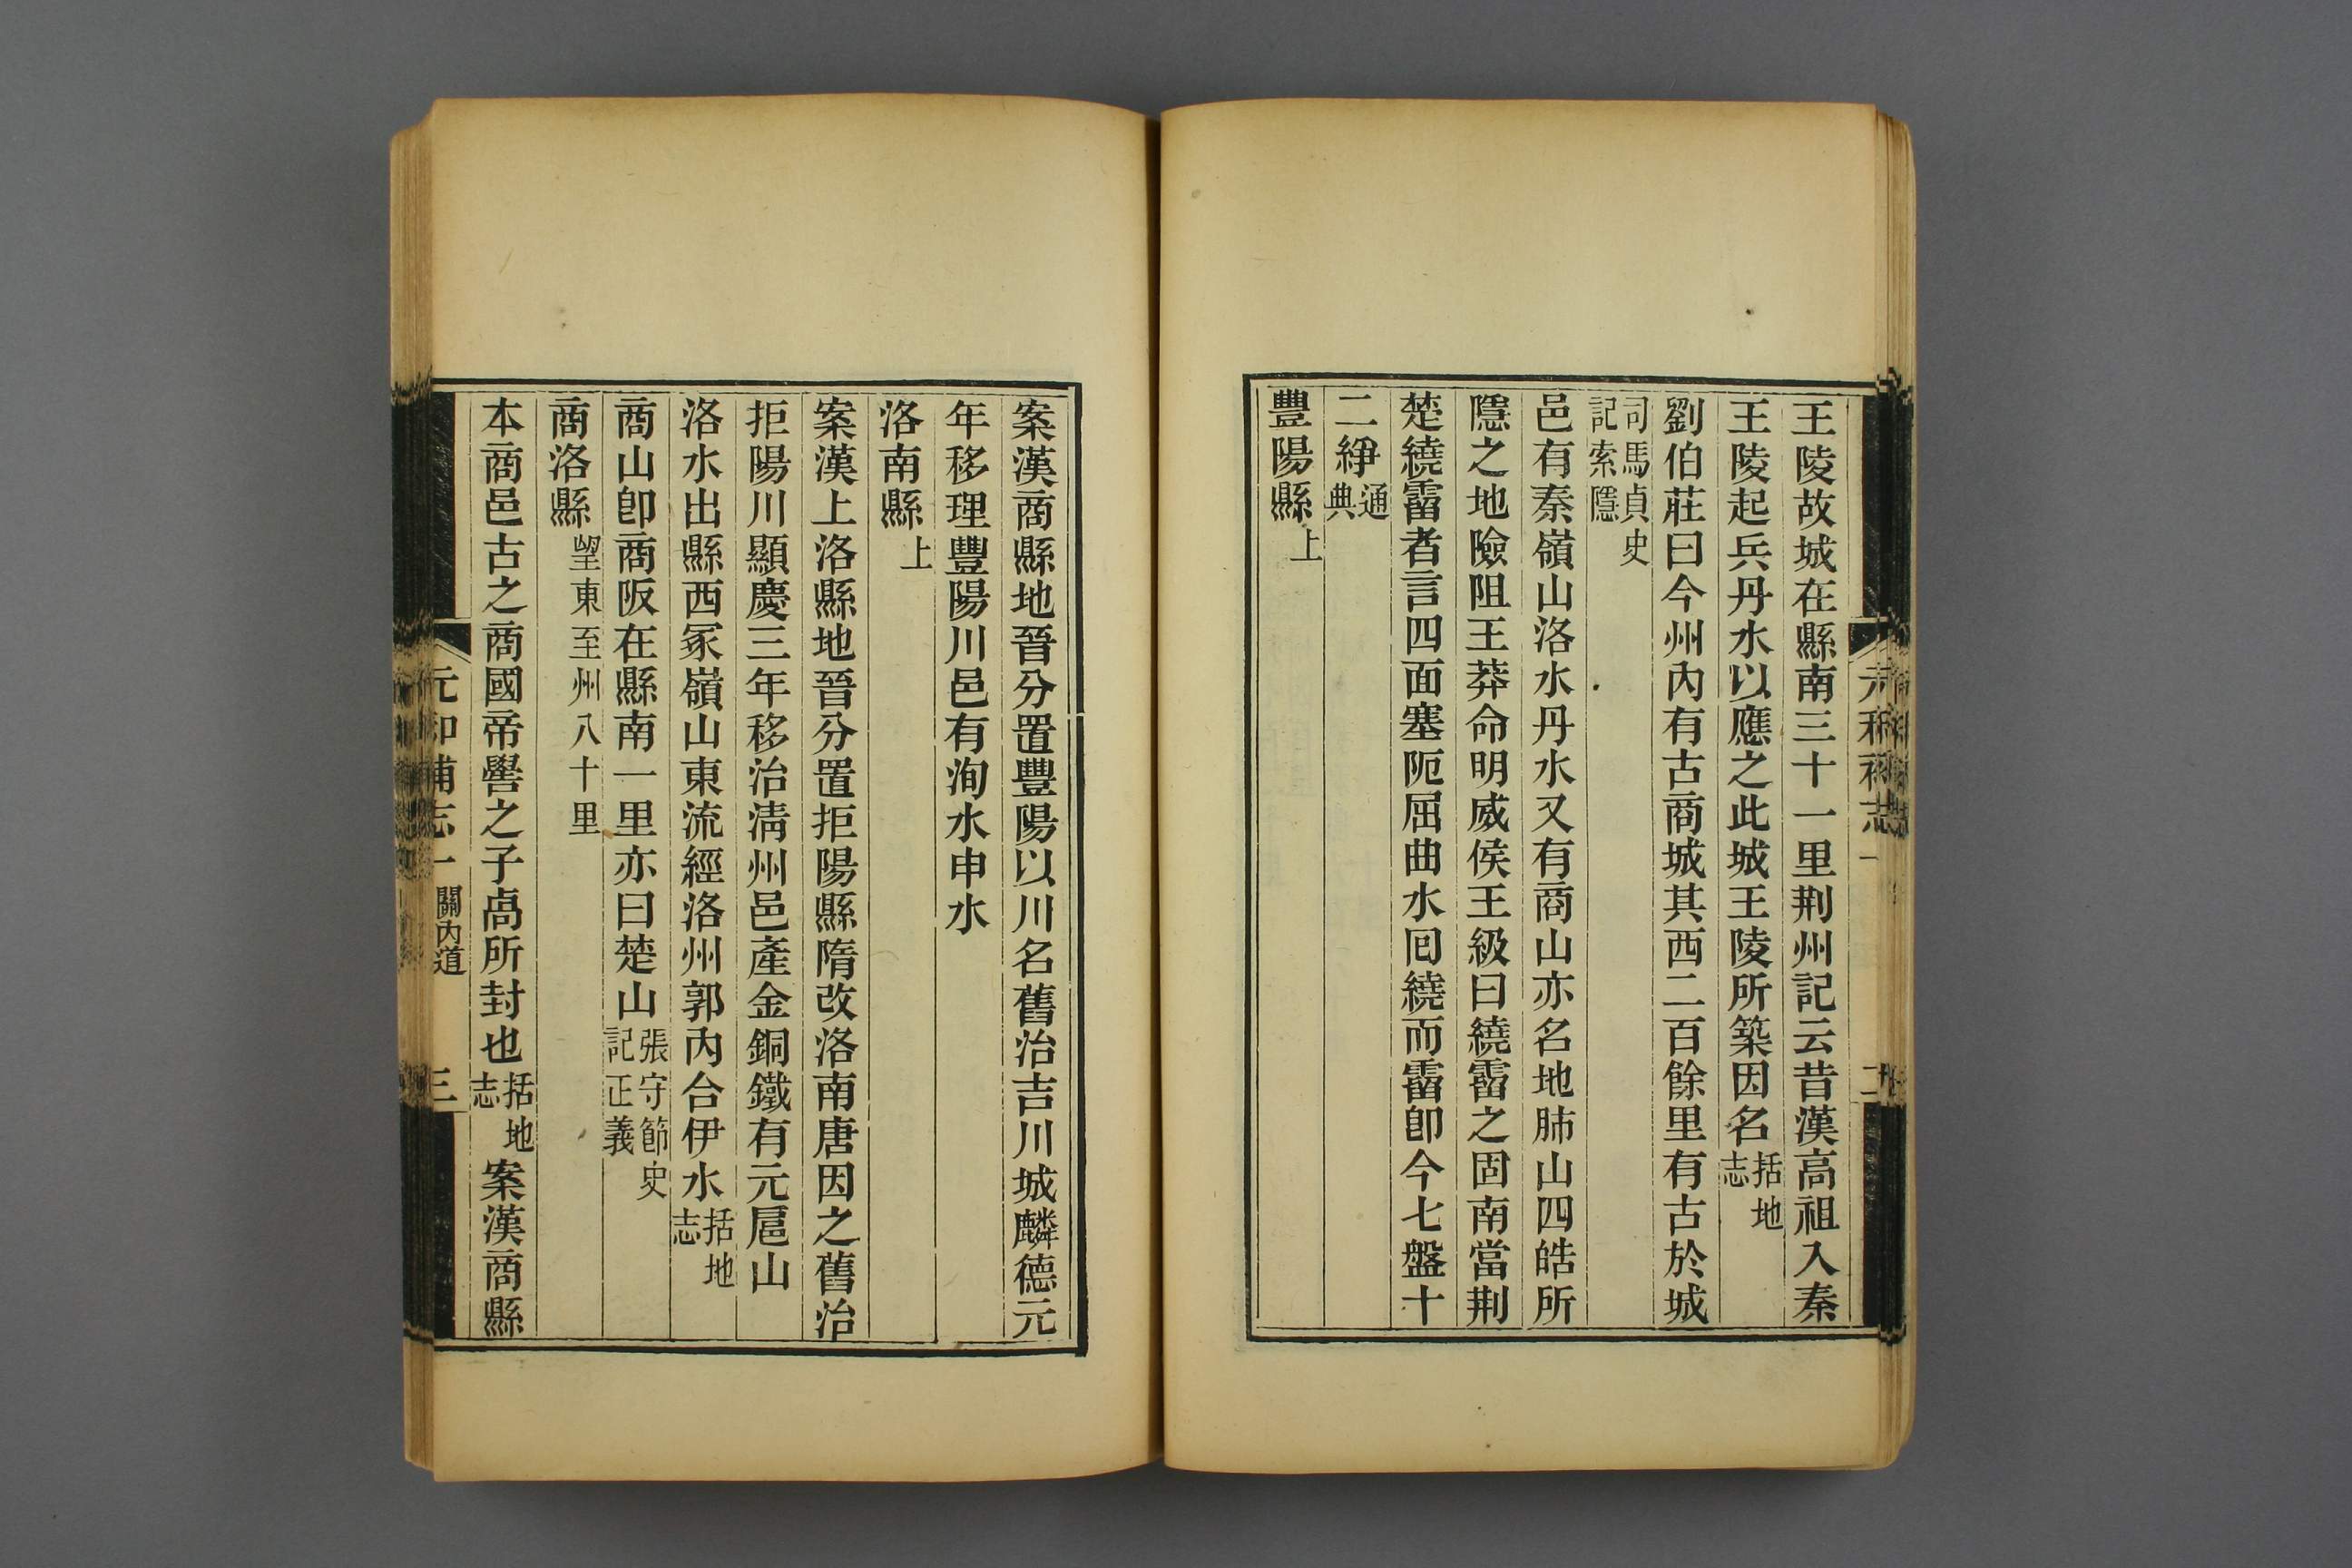 王陵故城在縣南三十一里荆州記云昔漢高祖入秦
王陵起兵丹水以應之此城王陵所築因名括地志
劉伯莊曰今州內有古商城其西二百餘里有古於城
司馬貞史記索隱
邑有秦嶺山洛水丹水又有商山亦名地肺山四皓所
隱之地險阻王莽命明威侯王級曰繞霤之固南當荆
楚繞霤者言四面塞阨屈曲水囘繞而霤卽今七盤十
二繂通典
豐陽縣上
案漢商縣地晉分置豐陽以川名舊治吉川城麟德元
年移理豐陽川邑有洵水申水
洛南縣上
案漢上洛縣地晉分置拒陽縣隋改洛南唐因之舊治
拒陽川顯慶三年移治清州邑產金銅鐵有元扈山
洛水出縣西冢嶺山東流經洛州郭內合伊水括地志
商山卽商阪在縣南一里亦曰楚山張守節史記正義
商洛縣望東至州八十里
本商邑古之商國帝嚳之子卨所封也括地志案漢商縣
元和補志一 關內道 三